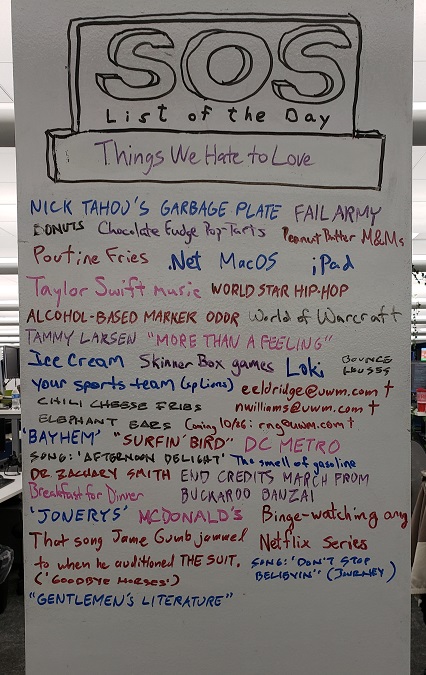 SOS
List of the Day
Things We Hate to Love
NICK TAHOU'S GARBAGE PLATE FAIL ARMY
DONUTS Chocolate Fudge Pop-Tarts Peanut Butter M&Ms
Poutine Fries .Net MacOS iPad
Taylor Swift music WORLD STAR HIP-HOP
ALCOHOL-BASED MARKER ODOR World of Warcraft
TAMMY LARSEN "MORE THAN A FEELING"
Ice Cream Skinner Box games Loki BOUNCE HOUSES
your sports team (go Lions) eeldridge@uwm.com †
CHILI CHEESE FRIES nwilliams@uwm.com †
ELEPHANT EARS Coming 10/26: rng@uwm.com †
'BAYHEM' "SURFIN' BIRD" DC METRO
SONG: 'AFTERNOON DELIGHT' The smell of gasoline
DR ZACHARY SMITH END CREDITS MARCH FROM
Breakfast for Dinner BUCKAROO BANZAI
'JONERYS' MCDONALD'S Binge-watching any
That song Jame Gumb jammed Netflix Series
to when he auditioned THE SUIT. SONG: 'DON'T STOP
('GOODBYE HORSES') BELIEVIN'' (JOURNEY)
"GENTLEMEN'S LITERATURE"